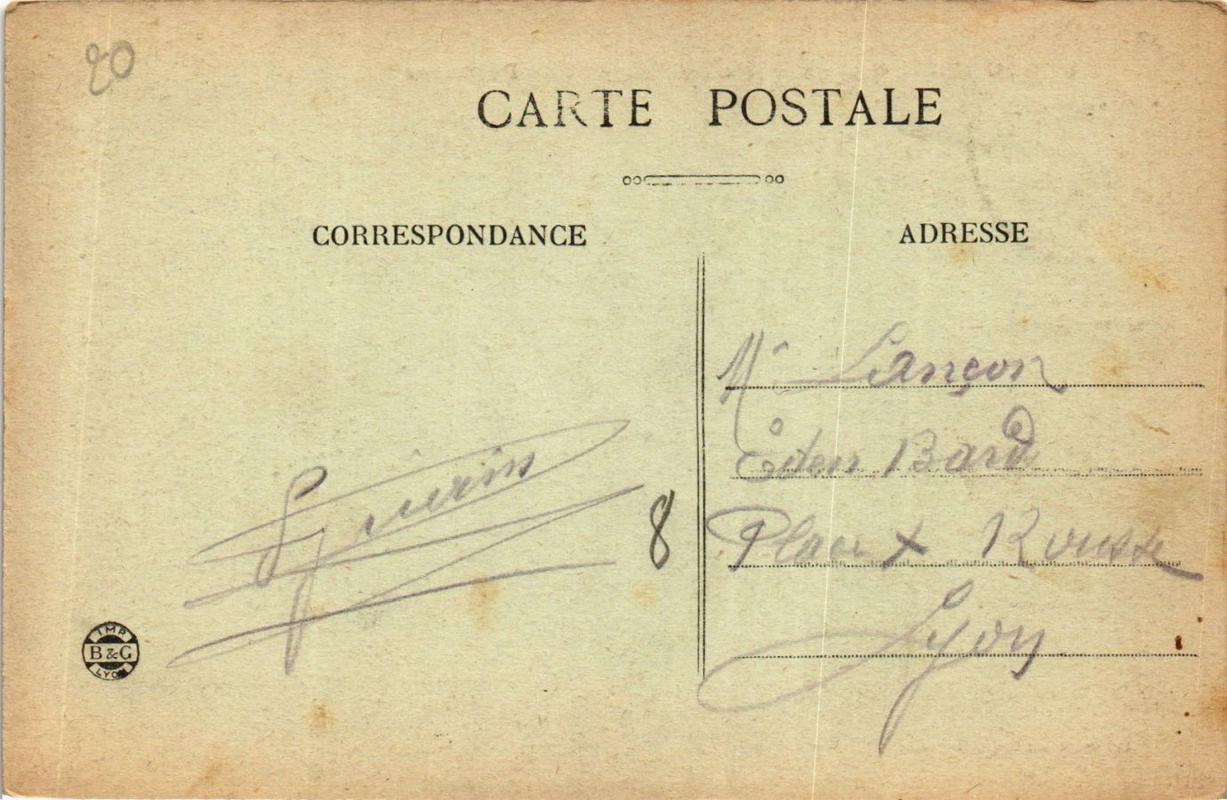 20
CARTE POSTALE
CORRESPONDANCE
ADRESSE
Mr Lançon
Eden Bard
Place + Rousse
Lyon
8
IMP
B & G
LYON